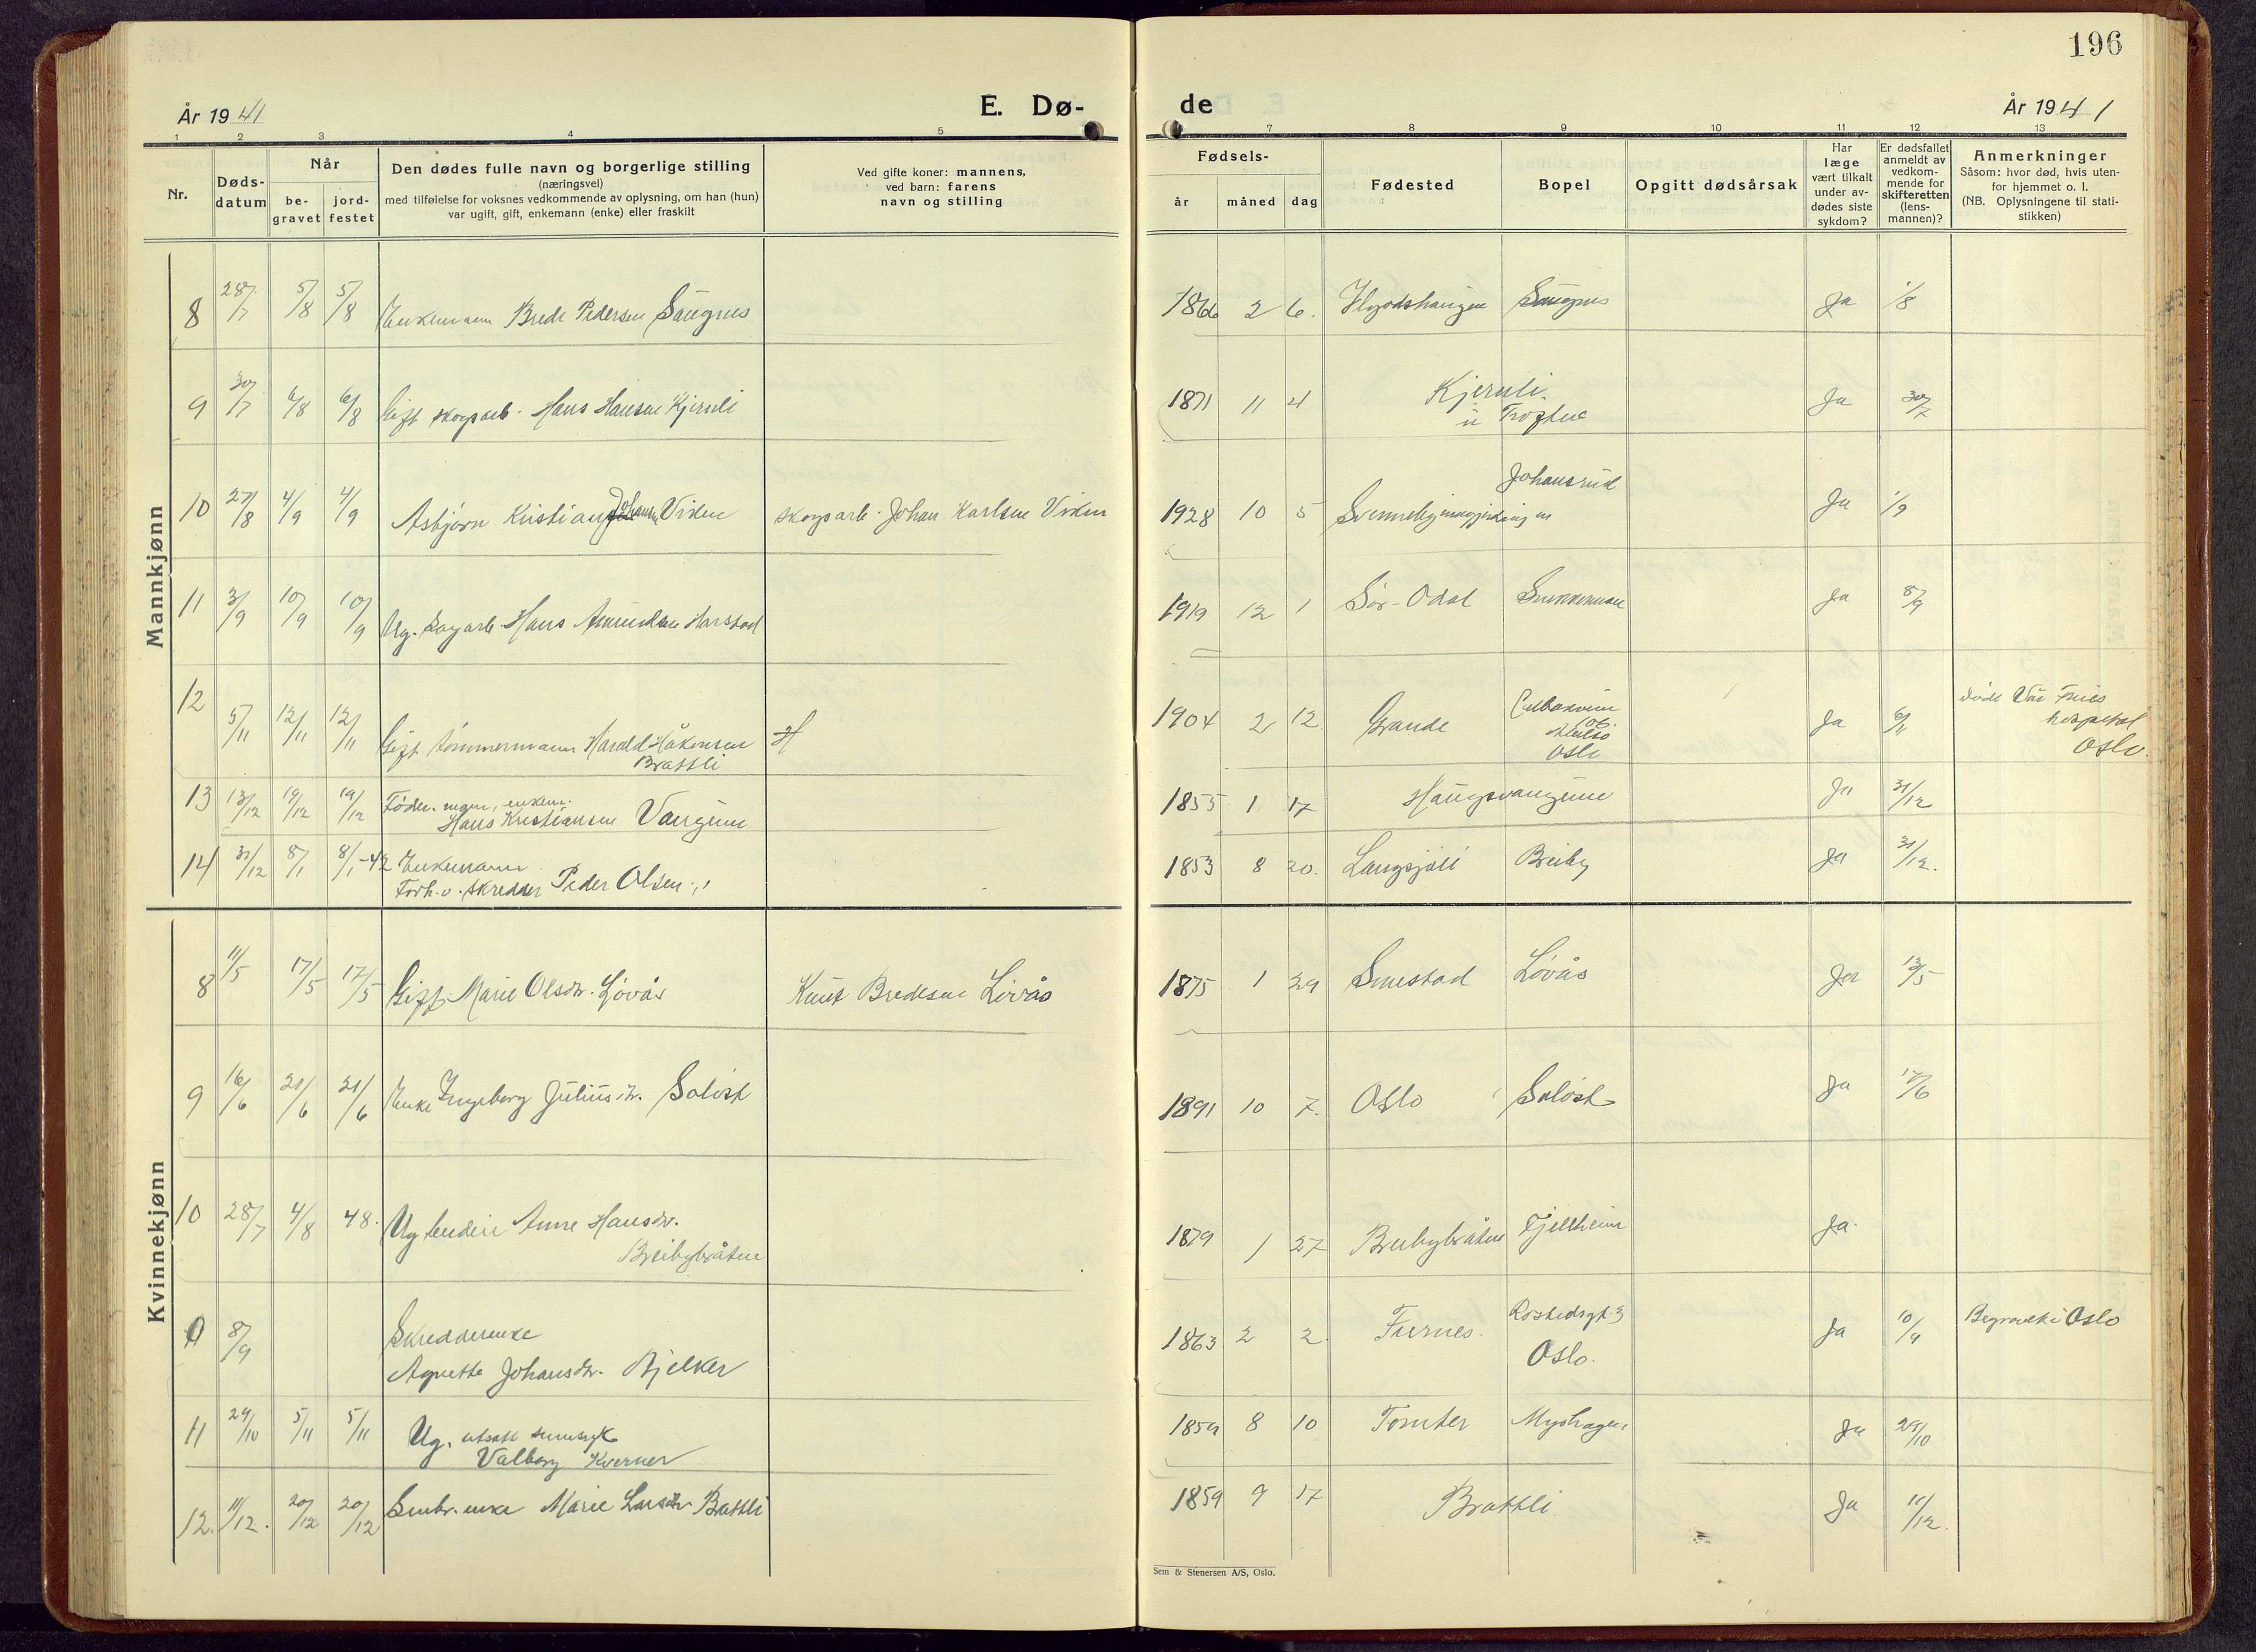 196
År 1941
E. Dø-
de
År 1941
1 2 3 4 5 7 8 9 10 11 12 13
Nr.
Døds-
datum
Når
be-
gravet
jord-
festet
Den dødes fulle navn og borgerlige stilling
(næringsvei)
med tilføielse for voksnes vedkommende av oplysning, om han (hun)
var ugift, gift, enkemann (enke) eller fraskilt
Ved gifte koner: mannens,
ved barn: farens
navn og stilling
Fødsels-
år måned dag
Fødested
Bopel
Opgitt dødsårsak
Har
læge
vært tilkalt
under av-
dødes siste
sykdom?
Er dødsfallet
anmeldt av
vedkom-
mende for
skifteretten
(lens-
mannen)?
Anmerkninger
Såsom: hvor død, hvis uten-
for hjemmet o. l.
(NB. Oplysningene til stati-
stikken)
Mannkjønn
8 28/7 5/8 5/8 Enkemann Brede Pedersen Saugnes 1866 2 6. Saugnes Ja 1/8
9 30/7 6/8 6/8 Gift skogsarb. Hans Hansen Kjernli 1871 11 4 Kjernli Ja 30/7
10 27/8 4/9 4/9 Asbjørn Kristian Johansen Viken skogsarb. Johan Karlsen Viken 1928 10 5 Johansrud Ja 1/9
11 3/9 10/9 10/9 Ug. Hans Amundsen Harstad 1919 12 1 Sør-Odal Ja 8/9
12 5/11 12/11 12/11 Gift tømmermann Harald Håkonsen
Brattli
H
1904 2 12 Grande Oslo Ja 6/11
hospital
Oslo.
13 13/12 19/12 19/12 Føder. mann, enkem.
Hans Kristiansen Vangum 1855 1 17 Haugsvangum Ja 31/12
14 31/12 8/1 8/1-42 Enkemann
Forh.v. skredder Peder Olsen 1853 8 20. Breiby Ja 31/12.
Kvinnekjønn
8 11/5 17/5 17/5 Gift Marie Olsdr. Løvås Knut Bredesen Løvås 1875 1 29 Smestad Løvås Ja 13/5
9 16/6 21/6 21/6 Enke Ingeborg Juliusdr. Soløst 1891 10 7. Oslo Soløst Ja 17/6
10 28/7 4/8 4 8. Ug. Anne Hansdr.
Breibybråten 1879 1 27 Breibybråten Fjellheim Ja.
8/9 Skredderenke
Agnette Johansdr. Bjelker 1863 2 2. Furnes. Oslo. Ja 10/9 Begravet i Oslo
11 24/10 5/11 5/11 Ug. utsatt sinnsyk
Valborg Kverner 1859 8 10 Tomter Myshagen Ja 29/10
12. 11/12. 20/12 20/12 Småbr. enke Marie Larsdr Brattli 1859 9 17 Brattli Ja 11/12.
Sem & Stenersen A/S, Oslo.